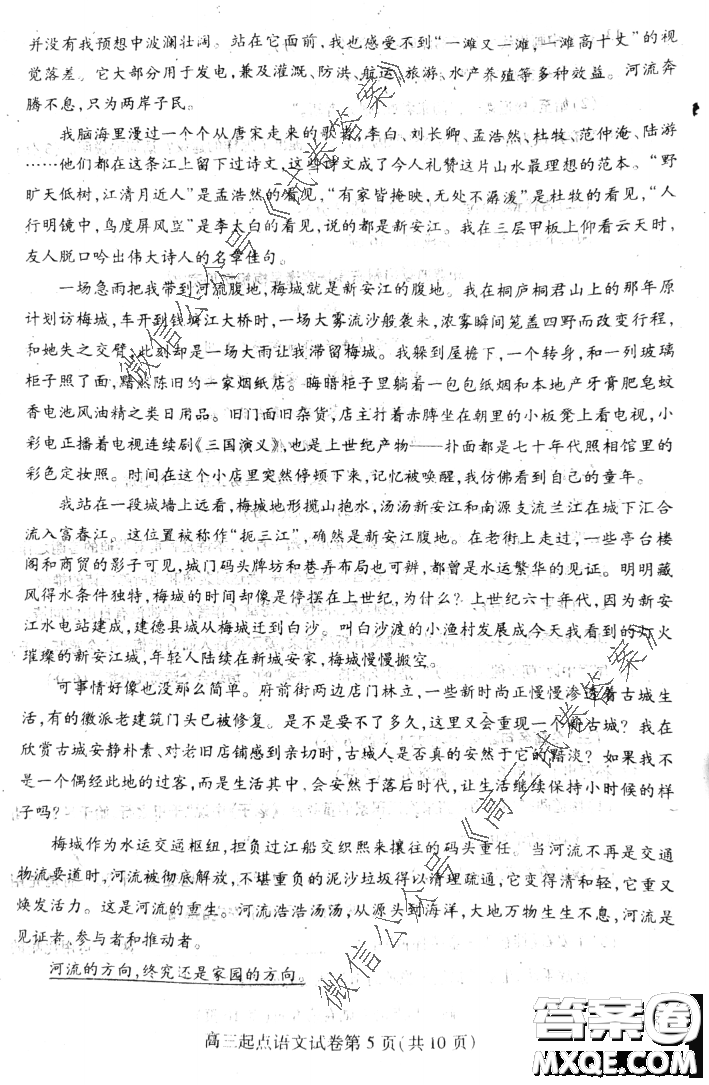 并没有我预想中波澜壮阔。站在它面前,我也感受不到“一滩又一滩,一滩高十丈”的视
觉落差。它大部分用于发电,兼及灌溉、防洪、航运、旅游、水产养殖等多种效益。河流奔
腾不息,只为两岸子民。
我脑海里漫过一个个从唐宋走来的歌者,李白、刘长卿、孟浩然、杜牧、范仲淹、陆游
……他们都在这条江上留下过诗文,这些诗文成了今人礼赞这片山水最理想的范本。“野
旷天低树,江清月近人”是孟浩然的看见,“有家皆掩映,无处不潺湲”是杜牧的看见,“人
行明镜中,鸟度屏风里”是李太白的看见,说的都是新安江。我在三层甲板上仰看云天时,
友人脱口吟出伟大诗人的名章佳句。
一场急雨把我带到河流腹地,梅城就是新安江的腹地。我在桐庐桐君山上的那年原
计划访梅城,车开到钱塘江大桥时,一场大雾流沙般袭来,浓雾瞬间笼盖四野而改变行程,
和她失之交臂,此刻却是一场大雨让我滞留梅城。我躲到屋檐下,一个转身,和一列玻璃
柜子照了面,黯然陈旧的一家烟纸店。晦暗柜子里躺着一包包纸烟和本地产牙膏肥皂蚊
香电池风油精之类日用品。旧门面旧杂货,店主打着赤膊坐在朝里的小板凳上看电视,小
彩电正播着电视连续剧《三国演义》,也是上世纪产物——扑面都是七十年代照相馆里的
彩色定妆照。时间在这个小店里突然停顿下来,记忆被唤醒,我仿佛看到自己的童年。
我站在一段城墙上远看,梅城地形揽山抱水,汤汤新安江和南源支流兰江在城下汇合
流入富春江。这位置被称作“扼三江”,确然是新安江腹地。在老街上走过,一些亭台楼
阁和商贸的影子可见,城门码头牌坊和巷弄布局也可辨,都曾是水运繁华的见证。明明藏
风得水条件独特,梅城的时间却像是停摆在上世纪,为什么?上世纪六十年代,因为新安
江水电站建成,建德县城从梅城迁到白沙。叫白沙渡的小渔村发展成今天我看到的灯火
璀璨的新安江城,年轻人陆续在新城安家,梅城慢慢搬空。
可事情好像也没那么简单。府前街两边店门林立,一些新时尚正慢慢渗透着古城生
活,有的徽派老建筑门头已被修复。是不是要不了多久,这里又会重现一个新古城?我在
欣赏古城安静朴素、对老旧店铺感到亲切时,古城人是否真的安然于它的黯淡?如果我不
是一个偶经此地的过客,而是生活其中,会安然于落后时代,让生活继续保持小时候的样
子吗?
梅城作为水运交通枢纽,担负过江船交织熙来攘往的码头重任。当河流不再是交通
物流要道时,河流被彻底解放,不堪重负的泥沙垃圾得以清理疏通,它变得清和轻,它重又
焕发活力。这是河流的重生。河流浩浩汤汤,从源头到海洋,大地万物生生不息,河流是
见证者,参与者和推动者。
河流的方向,终究还是家园的方向。
高三起点语文试卷第 5 页(共 10 页)
微信公众号《试卷答案》
微信公众号《高三试卷答案》
答案圈
MXQE.COM